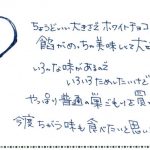 ちょうどいい大きさでホワイトチョコ
餡がめっちゃ美味しくて大
いろんな味があるので
いろいろためしたいけど
やっぱり普通の巣ごもりを買っ
今度ちがう味も食べたいと思い